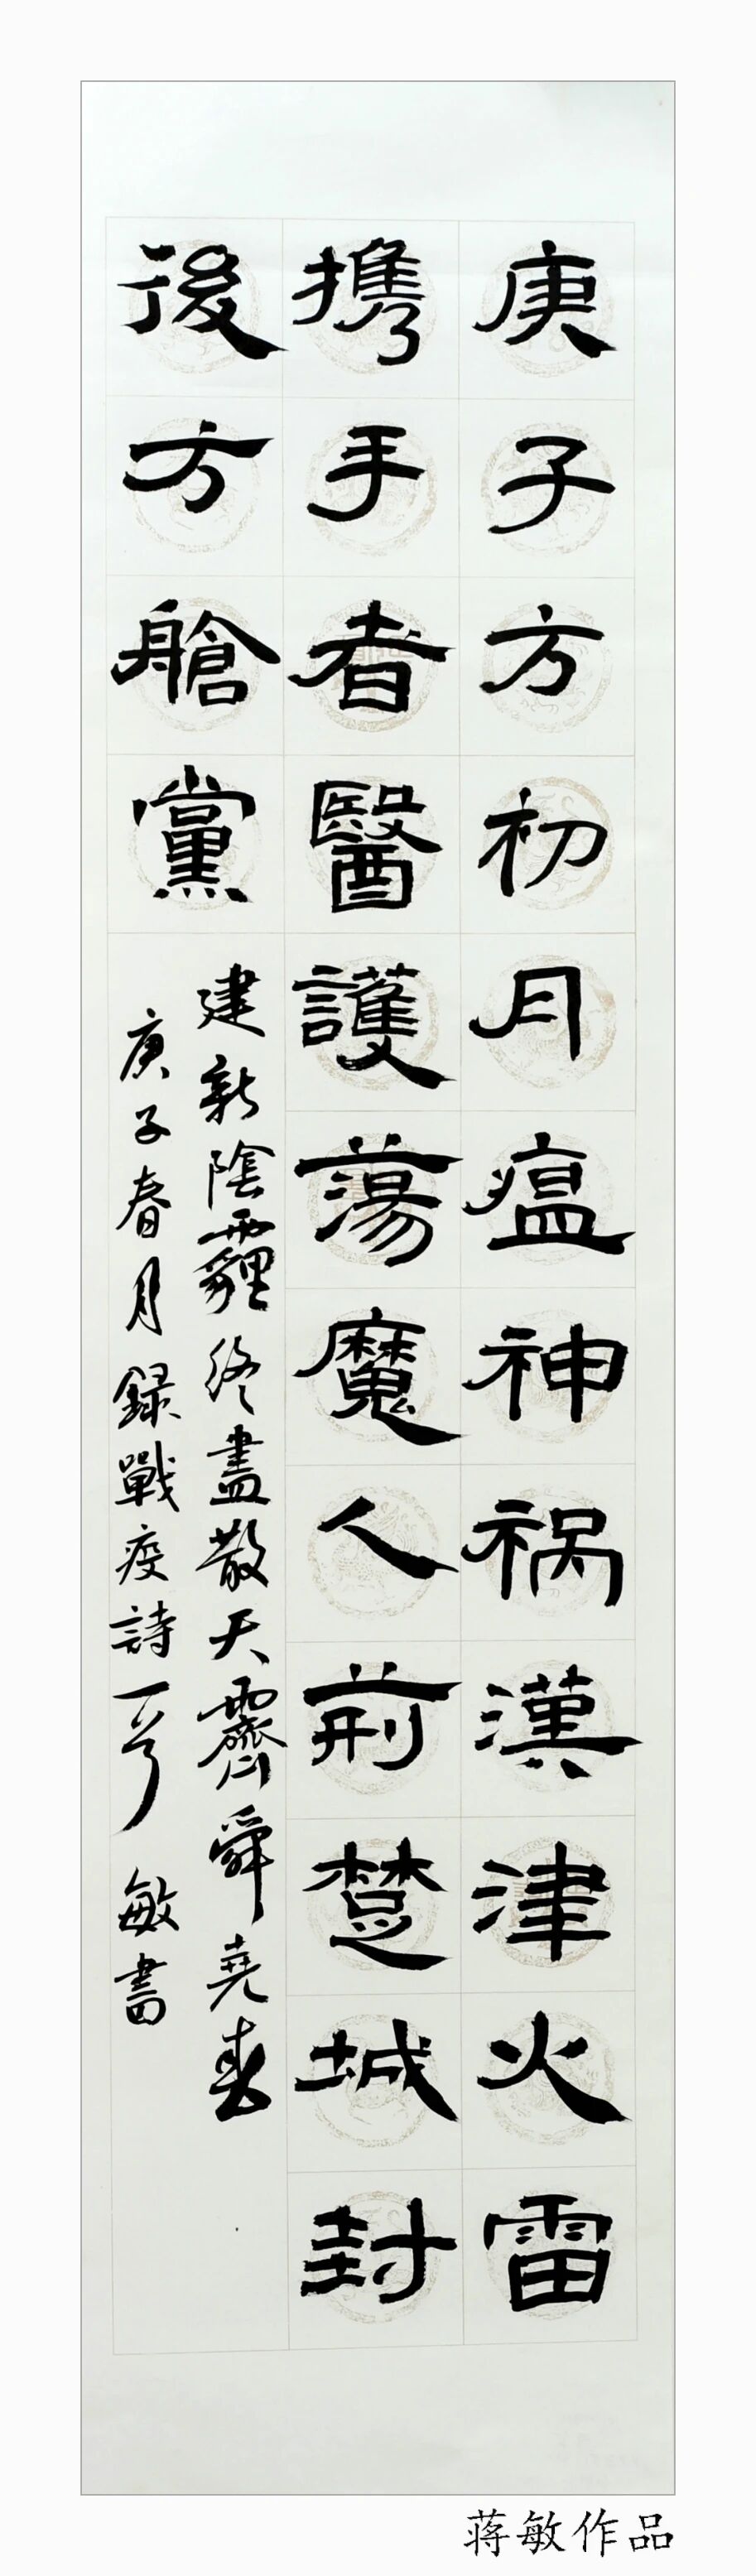 庚子方初月瘟神祸漢津火雷
携手者醫護蕩魔人荆楚城封
後方艙黨
建新陰霾終盡散天霽舜堯春
庚子春月録戰疫詩一首 敏書
蒋敏作品